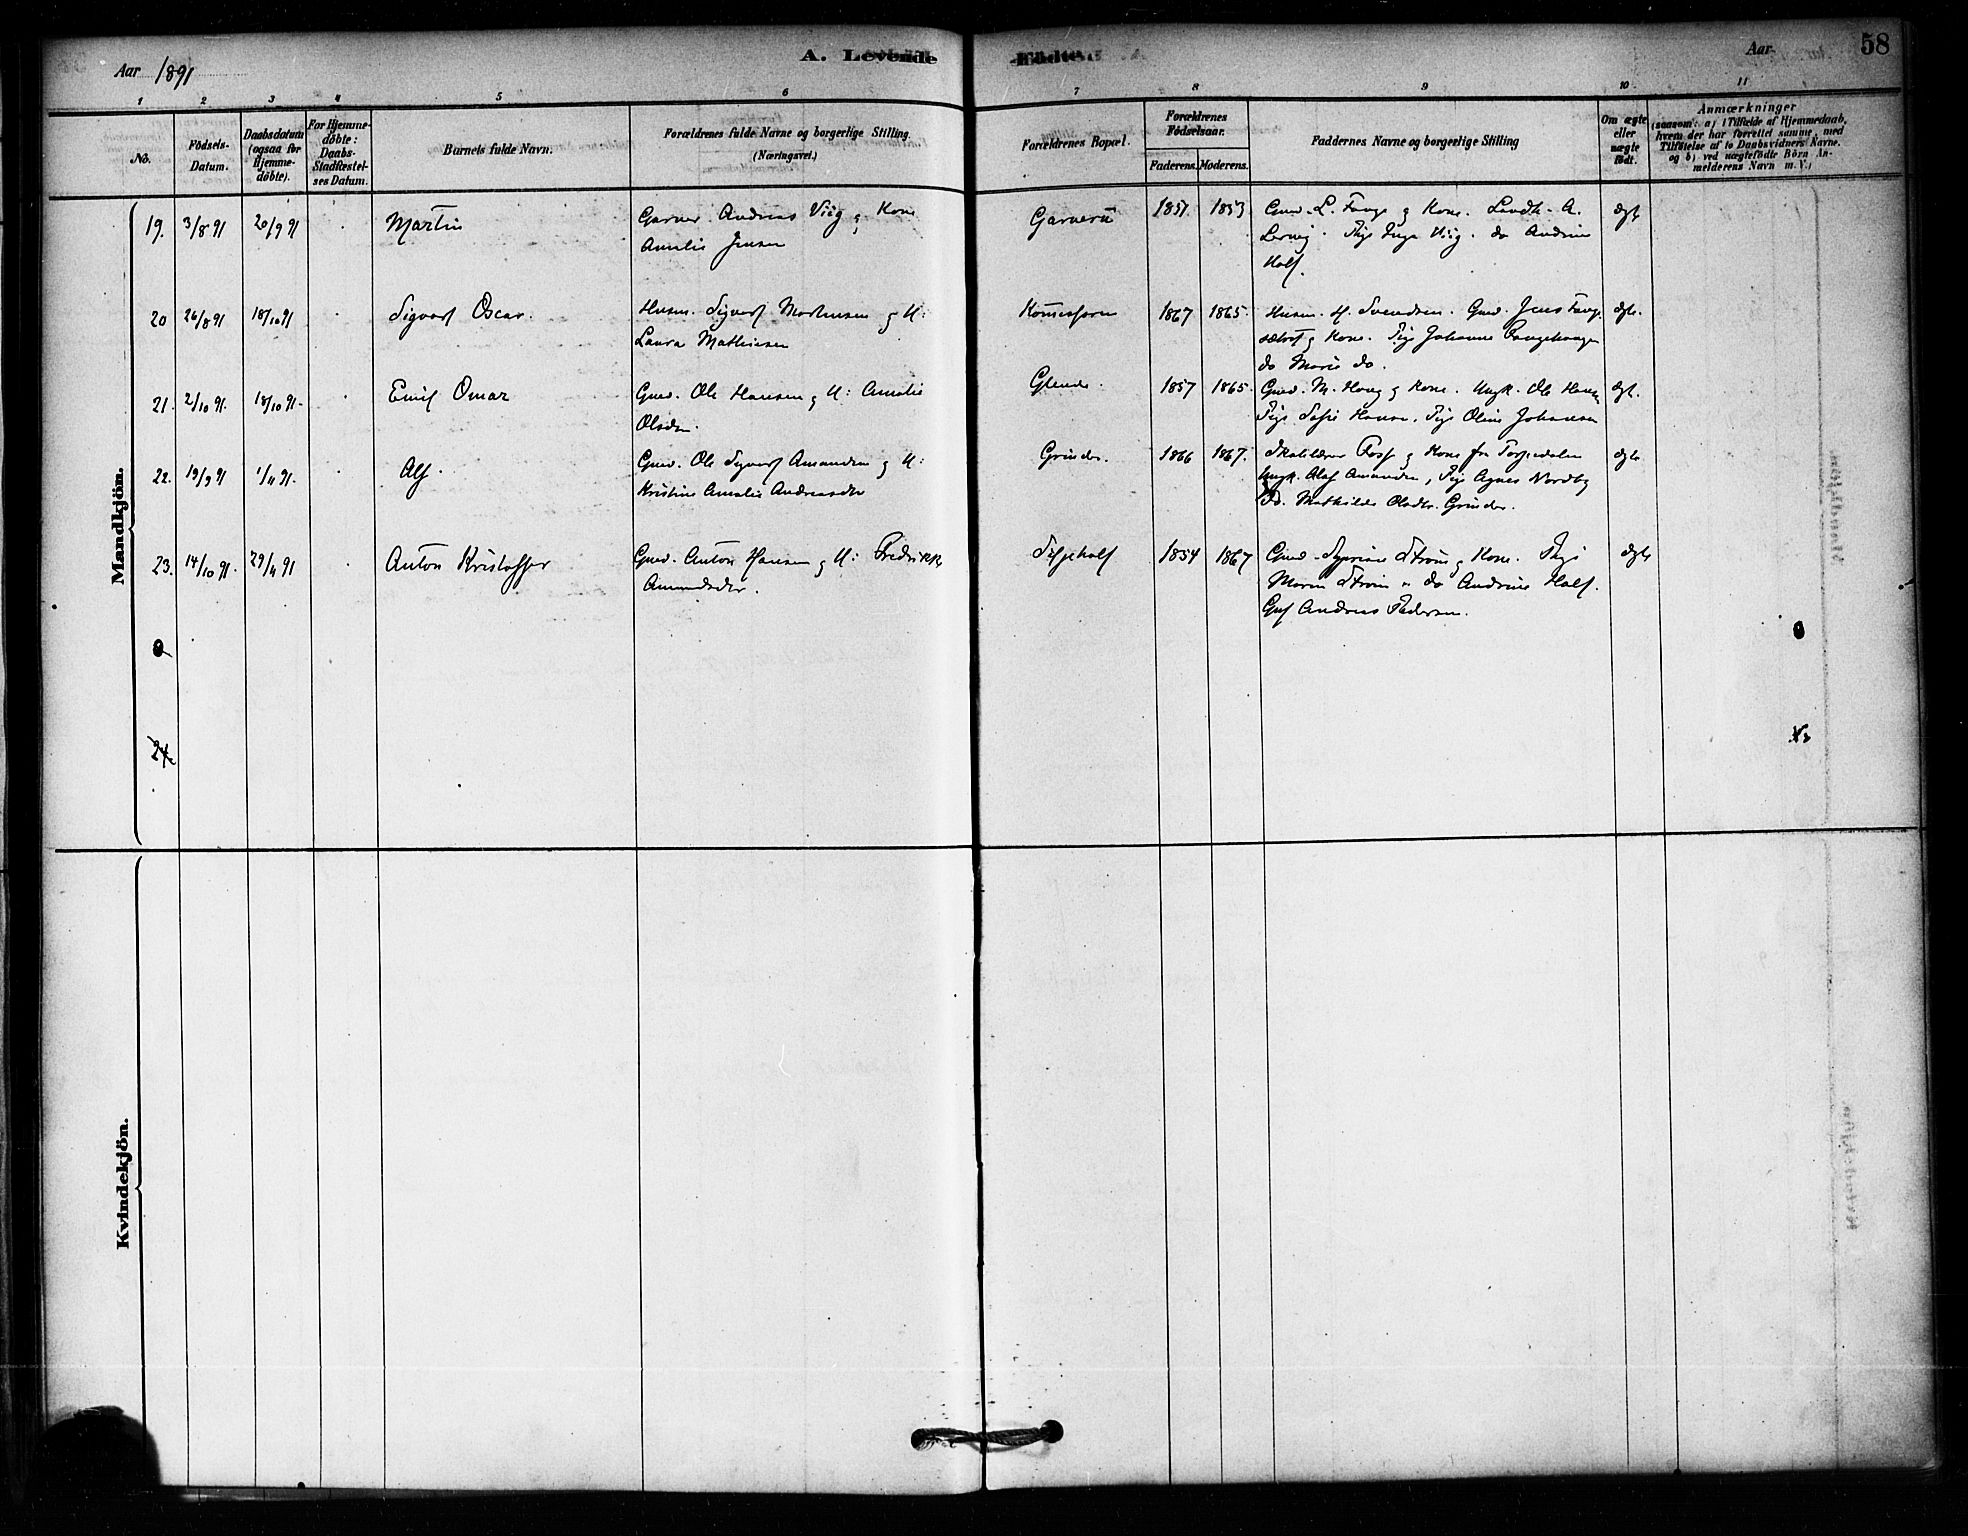 Aar 1891
A. Levende Födte.
Aar
58
1 2 3 4 5 6 7 8 9 10 11
No.
Födsels-Datum.
Daabsdatum (ogsaa for Hjemme-döbte).
For Hjemme-döbte: Daabs-Stadfæstel-ses Datum.
Barnets fulde Navn.
Forældrenes fulde Navne og borgerlige Stilling. (Næringsvei.)
Forældrenes Bopæl.
Forældrenes Födselsaar.
Faderens. Moderens.
Faddernes Navne og borgerlige Stilling
Om ægte eller uægte födt.
Anmærkninger
(saasom: a) i Tilfælde af Hjemmedaab,
hvem der har forrettet samme, med
Tilföielse af to Daabsvidners Navne.
og b) ved uægtefödte Börn An-
melderens Navn m. V.)
Mandkjön.
19. 3/8 91 20/9 91 Martin
Garver Andreas Viig og Kone
Amalie Jensen
1851 1853
Gmd. L. Fange og Kone. Landh. A.
Pige Inga Viig. do Andrine
Holt.
ægte
20 26/8 91 18/10 91 Sigvart Oscar.
Husm. Sigvart Martinsen og H:
Laura Mathisen
1867 1865.
Husm. H. Svendsen. Gmd. Jens
og Kone. Pige Johanne
do Marie do.
ægte.
21. 2/10 91. 18/10 91. Emil Omar
Gmd. Ole Hansen og H: Amalie
Olsdtr.
Glende.
1857 1865.
Gmd. M. Haug og Kone. Ungk. Ole Hansen
Pige Sofie Hansen. Pige Oline Johansen
ægt.
22. 19/9 91 1/11 91. Alf.
Gmd. Ole Sigvart Amundsen og H:
Kristine Amalie Andreasdtr
Grinder.
1866 1867.
Skolelærer Foss og Kone fra Torpedalen
Ungk. Olaf Amundsen, Pige Agnes Nordby
Do. Mathilde Olsdtr. Grinder.
ægte
23. 14/10 91. 29/11 91 Anton Kristoffer
Gmd. Anton Hansen og H: Fredrikke
Amundsdtr.
1854 1867
Gmd. Strøm og Kone. Pige
Maren Strøm. do Andrine Holt.
Gmd Andreas Pedersen.
ægte
24
Kvindekjön.